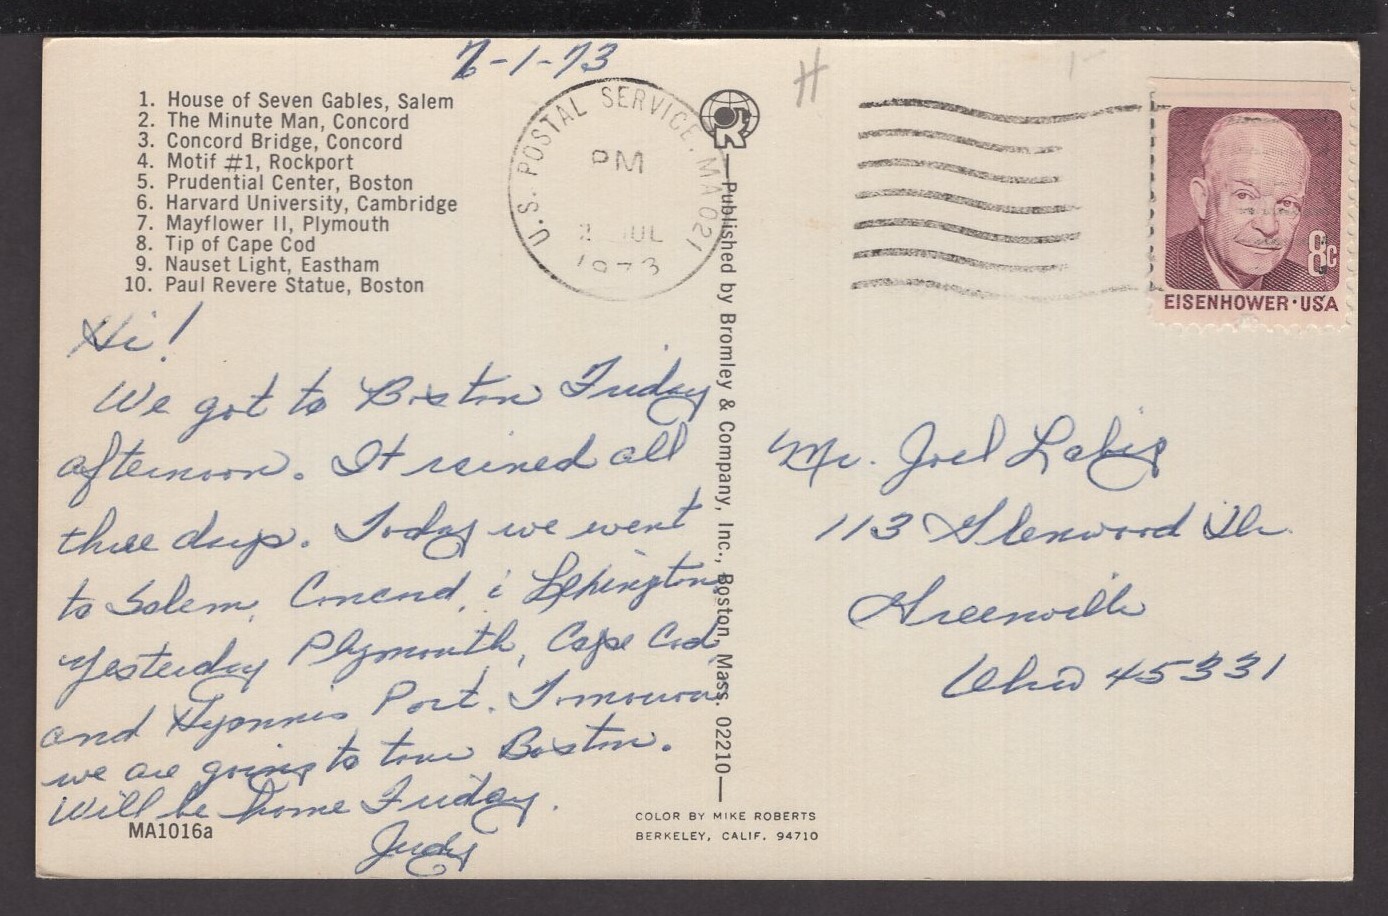 7-1-73
1. House of Seven Gables, Salem
2. The Minute Man, Concord
3. Concord Bridge, Concord
4. Motif #1, Rockport
5. Prudential Center, Boston
6. Harvard University, Cambridge
7. Mayflower II, Plymouth
8. Tip of Cape Cod
9. Nauset Light, Eastham
10. Paul Revere Statue, Boston
Hi!
We got to Boston Friday
afternoon. It rained all
three days. Today we went
to Salem, Concord, &
Yesterday Plymouth, Cape Cod,
and Hyannis Port. Tomorrow
we are going to tour Boston.
Will be home Friday.
Judy
MA1016a
U.S. POSTAL SERVICE, MA 021
PM
JUL
1973
R
Published by Bromley & Company, Inc., Boston, Mass. 02210
COLOR BY MIKE ROBERTS
BERKELEY, CALIF. 94710
H
8c
EISENHOWER·USA
Mr. Joel
113 Glenwood Dr.
Greenville
Ohio 45331